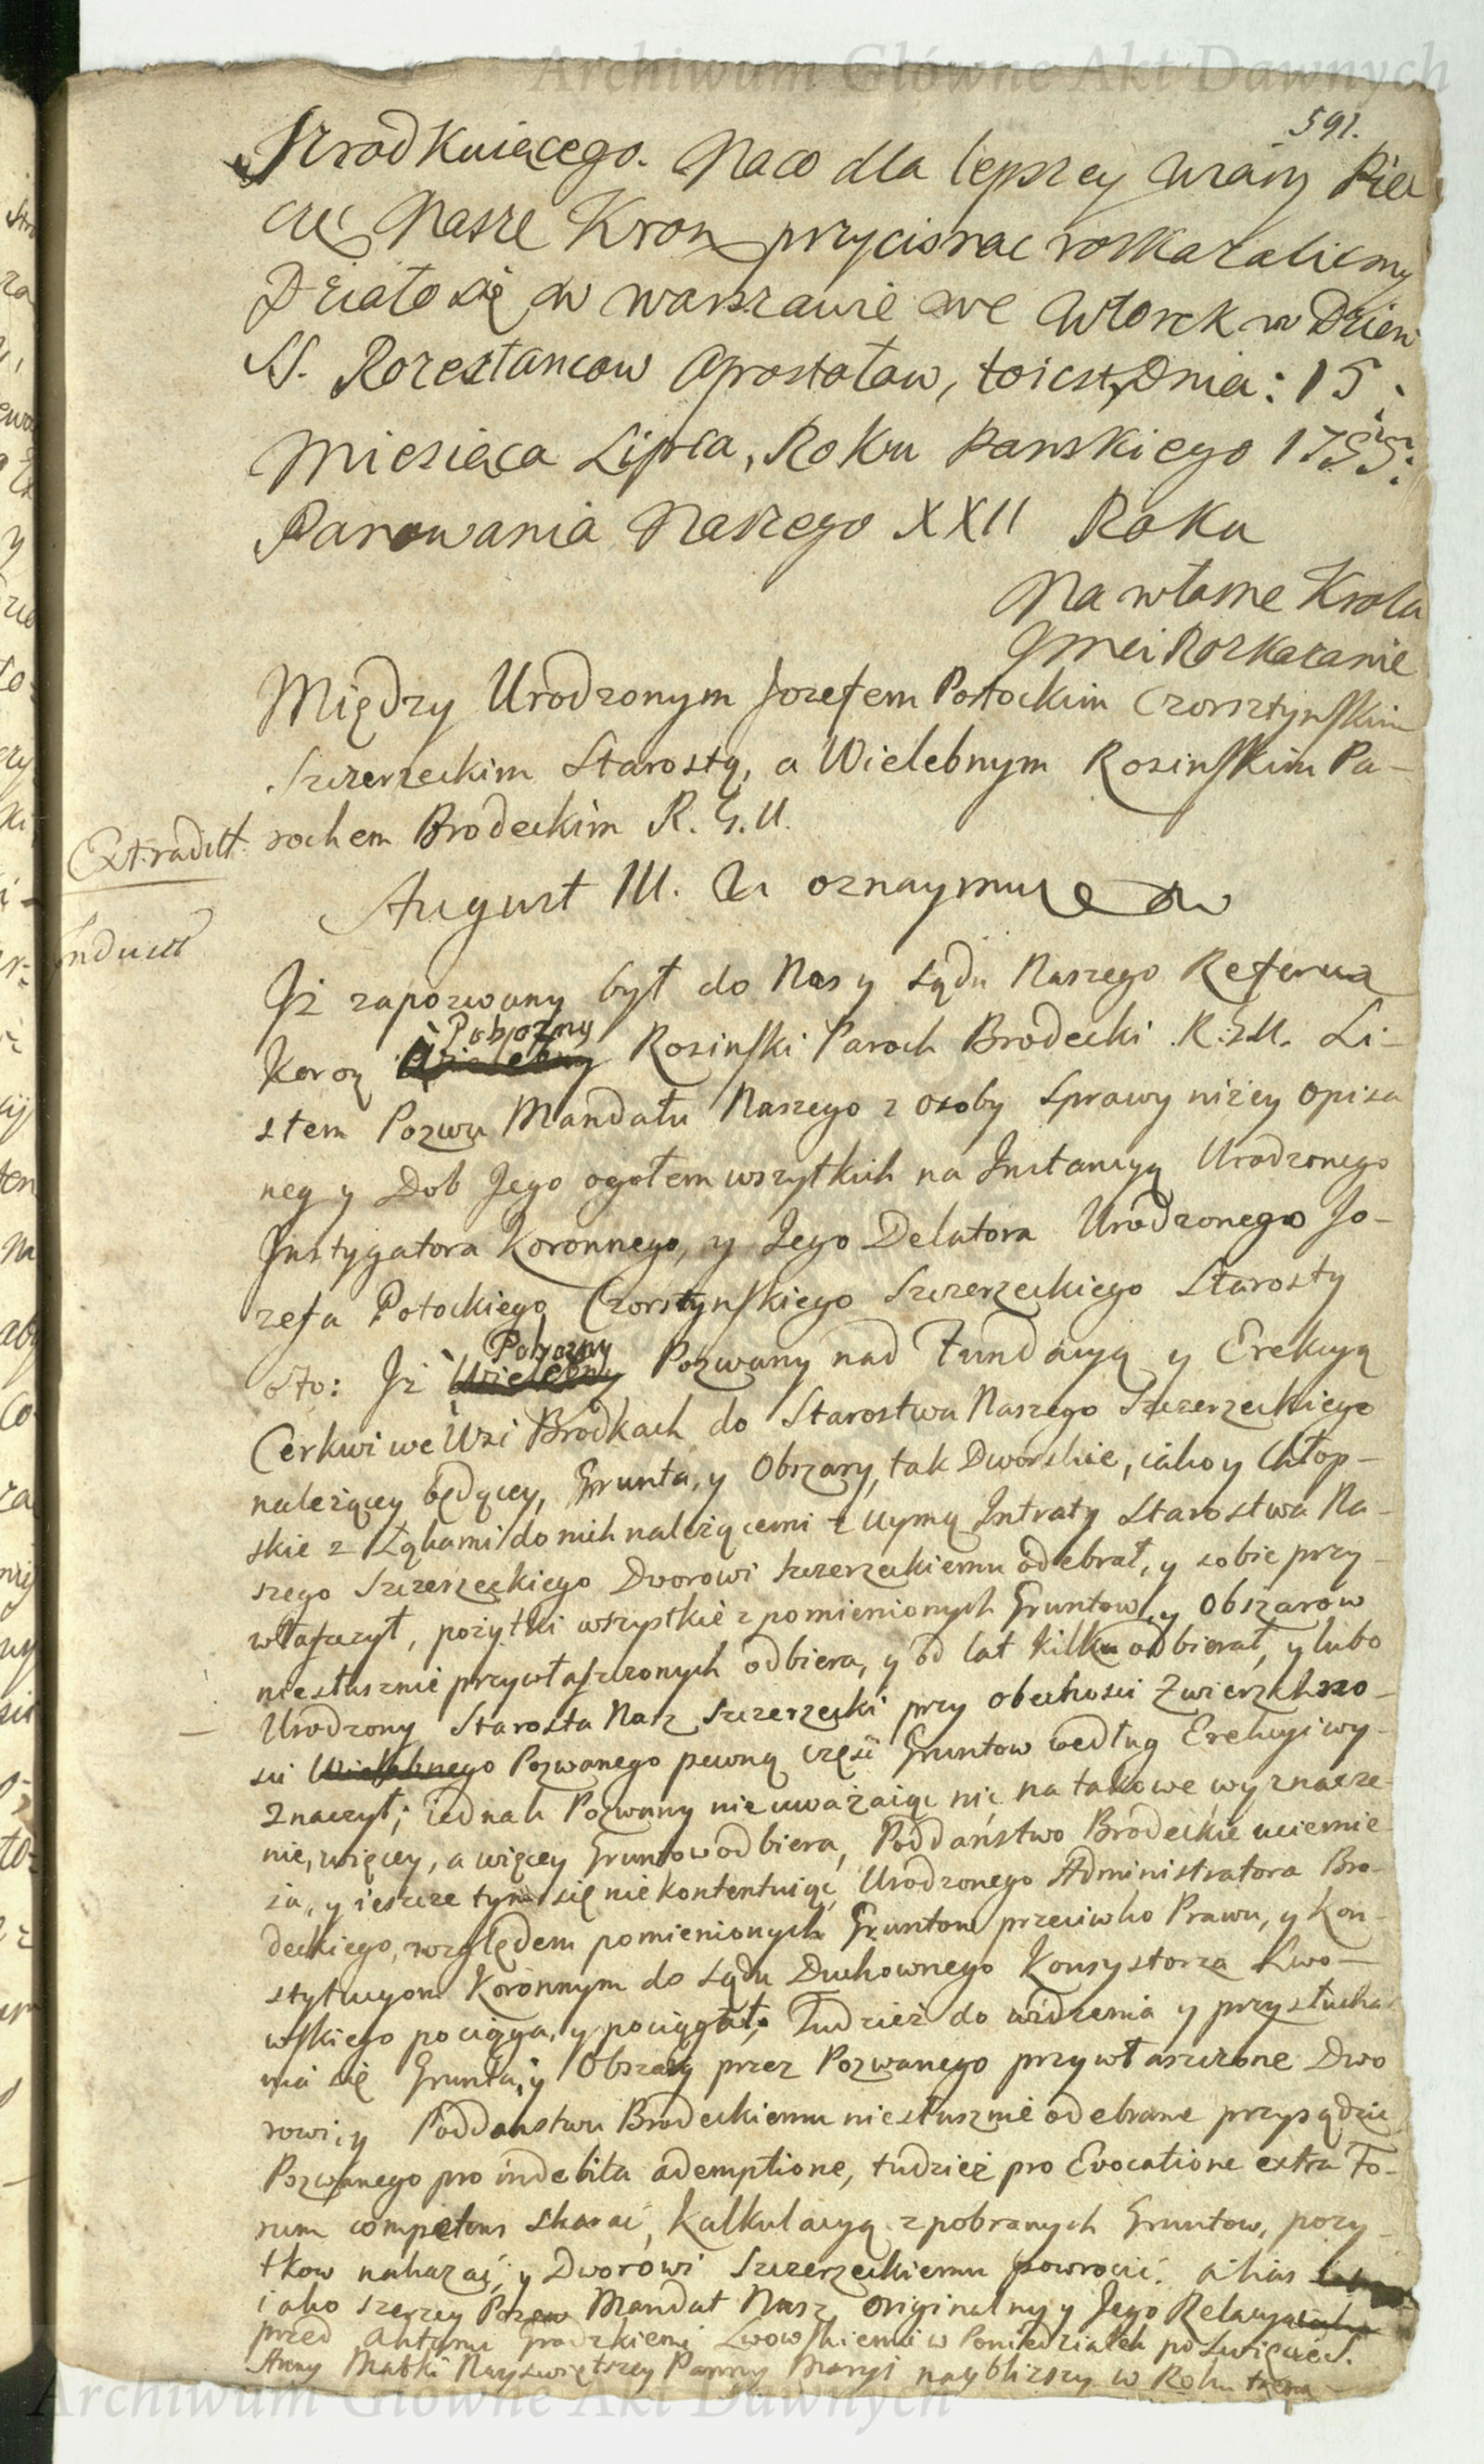 Archiwum Główne Akt Dawnych
591.
Naco dla lepszey wiary Piec
częć Nasze Kron przycisnac roskazalismy
Działo się w warszawie we Wtorek w Dzien
SS. Rozesłancow Apostołow, toiest Dnia: 15.
Miesiąca Lipca, Roku Panskiego 1755:
Panowania Naszego XXII Roku
Na własne Krola
Jmci Rozkazanie
Między Urodzonym Jozefem Potockim Czorsztynskim
Szczerzeckim Starostą, a Wielebnym Rosinskim Pa-
Extradict. rochem Brodeckim R. G. U.
August III. oznaymuie
Induct
Iż zapozwany był do Nas y Sądu Naszego Referen
Koron Pobożny Rosinski Paroch Brodecki R. G. U. Li-
stem Pozwu Mandatu Naszego z osoby Sprawy niżey opisa
ney y Dob Jego ogołem wszytkich na Instancyą Urodzonego
Instygatora Koronnego, y Jego Delatora Urodzonego Jo-
zefa Potockiego Czorstynskiego Szczerzeckiego Starosty
oto: Iż Pobożny Pozwany nad Fundacyą y Erekcyą
Cerkwi we Wsi Brodkach do Starostwa Naszego Szczerzeckiego
należącey będącey, Grunta, y Obszary, tak Dworskie, iako y Chłop-
skie z Łąkami do nich należącemi z uymą Intraty Starostwa Na-
szego Szczerzeckiego Dworowi Szczerzeckiemu odebrał, y sobie przy-
właszczył, pożytki wszystkie z pomienionych Gruntow, y Obszarow
niesłusznie przywłaszczonych odbiera, y od lat kilku odbierał, y lubo
Urodzony Starosta Nasz Szczerzecki przy obecności Zwierzchno-
sci Wielebnego Pozwanego pewną część Gruntow według Erekcyi wy-
znaczył; iednak Pozwany nie uważaiąc nic na takowe wyznacze-
nie, więcey, a więcey Gruntow odbiera, Poddaństwo Brodeckie uciemie-
ża, y ieszcze tym się nie kontentuiąc, Urodzonego Administratora Bro-
deckiego, względem pomienionych Gruntow przeciwko Prawu, y Kon-
stytucyom Koronnym do Sądu Duchownego Konsystorza Lwo-
wskiego pociąga, y pociągał; Tudzież do widzenia y przysłucha
nia się Grunta, y Obszary przez Pozwanego przywłaszczone Dwo
rowi, y Poddanstwu Brodeckiemu niesłusznie odebrane przysądzic
Pozwanego pro indebita ademptione, tudzież pro Evocatione extra Fo-
rum competens skazać, Kalkulacyą z pobranych Gruntow, pozy-
tkow nakazać, y Dworowi Szczerzeckiemu powrocić. alias
iako szerzey Mandat Nasz originalny y Jego Relacya
przed Antonim Grodzkiemi Lwowskiemi w Poniedziałek po Swięcie S.
Anny Matki Nayswiętszey Panny Maryi naybliższy w Roku
Archiwum Główne Akt Dawnych